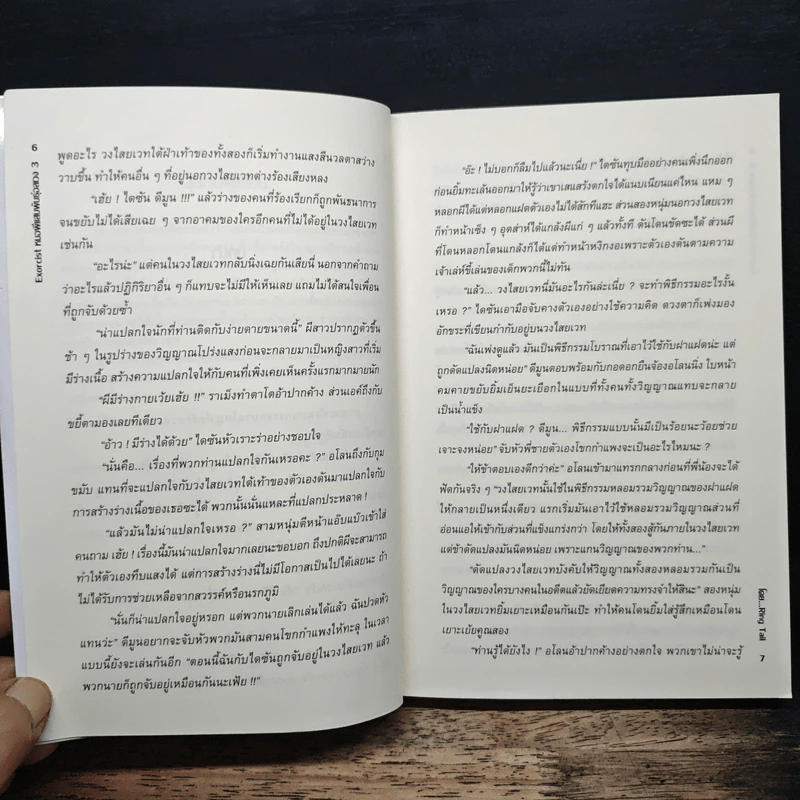 6
Exorcist หมอผีแสบพันธุ์ลุยลวง 3
พูดอะไร วงไสยเวทใต้ฝ่าเท้าของทั้งสองก็เริ่มทำงานแสงสีนวลตาสว่าง
วาบขึ้น ทำให้คนอื่น ๆ ที่อยู่นอกวงไสยเวทต่างร้องเสียงหลง
"เฮ้ย ! ไดซัน ดีมูน !!!" แล้วร่างของคนที่ร้องเรียกก็ถูกพันธนาการ
จนขยับไม่ได้เสียเฉย ๆ จากอาคมของใครอีกคนที่ไม่ได้อยู่ในวงไสยเวท
เช่นกัน
"อะไรน่ะ" แต่คนในวงไสยเวทกลับนิ่งเฉยกันเสียนี่ นอกจากคำถาม
ว่าอะไรแล้วปฏิกิริยาอื่น ๆ ก็แทบจะไม่มีให้เห็นเลย แถมไม่ได้สนใจเพื่อน
ที่ถูกจับด้วยซ้ำ
"น่าแปลกใจนักที่ท่านติดกับง่ายดายขนาดนี้" ผีสาวปรากฏตัวขึ้น
ช้า ๆ ในรูปร่างของวิญญาณโปร่งแสงก่อนจะกลายมาเป็นหญิงสาวที่เริ่ม
มีร่างเนื้อ สร้างความแปลกใจให้กับคนที่เพิ่งเคยเห็นครั้งแรกมากมายนัก
"ผีมีร่างกายเว้ยเฮ้ย !!" ราเม็งทำตาโตอ้าปากค้าง ส่วนเอคถึงกับ
ขยี้ตามองเลยทีเดียว
"อ้าว ! มีร่างได้ด้วย" ไดซันหัวเราะร่าอย่างชอบใจ
"นั่นคือ... เรื่องที่พวกท่านแปลกใจกันเหรอคะ ?" อโลนถึงกับกุม
ขมับ แทนที่จะแปลกใจกับวงไสยเวทใต้เท้าของตัวเองดันมาแปลกใจกับ
การสร้างร่างเนื้อของเธอซะได้ พวกนั้นนั่นแหละที่แปลกประหลาด !
"แล้วมันไม่น่าแปลกใจเหรอ ?" สามหนุ่มตีหน้าแอ๊บแบ๊วเข้าใส่
คนถาม เฮ้ย ! เรื่องนี้มันน่าแปลกใจมากเลยนะขอบอก ถึงปกติผีจะสามารถ
ทำให้ตัวเองทึบแสงได้ แต่การสร้างร่างนี่ไม่มีโอกาสเป็นไปได้เลยนะ ถ้า
ไม่ได้รับการช่วยเหลือจากสวรรค์หรือนรกภูมิ
"นั่นก็น่าแปลกใจอยู่หรอก แต่พวกนายเลิกเล่นได้แล้ว ฉันปวดหัว
แทนว่ะ" ดีมูนอยากจะจับหัวพวกมันสามคนโขกกำแพงให้ทะลุ ในเวลา
แบบนี้ยังจะเล่นกันอีก "ตอนนี้ฉันกับไดซันถูกจับอยู่ในวงไสยเวท แล้ว
พวกนายก็ถูกจับอยู่เหมือนกันนะเฟ้ย !!"
"อ๊ะ ! ไม่บอกก็ลืมไปแล้วนะเนี่ย !" ไดซันทุบมืออย่างคนเพิ่งนึกออก
ก่อนยิ้มทะเล้นออกมาให้รู้ว่าเขาเสแสร้งตกใจได้แนบเนียนแค่ไหน แหม ๆ
หลอกผีได้แต่หลอกแฝดตัวเองไม่ได้สักทีแฮะ ส่วนสองหนุ่มนอกวงไสยเวท
ก็ทำหน้าเซ็ง ๆ อุตส่าห์ได้แกล้งผีแก่ ๆ แล้วทั้งที ดันโดนขัดซะได้ ส่วนผี
ที่โดนหลอกโดนแกล้งก็ได้แต่ทำหน้าหงิกงอเพราะตัวเองดันตามความ
เจ้าเล่ห์ขี้เล่นของเด็กพวกนี้ไม่ทัน
"แล้ว... วงไสยเวทนี่มันอะไรกันล่ะเนี่ย ? จะทำพิธีกรรมอะไรงั้น
เหรอ ?" ไดซันเอามือจับคางตัวเองอย่างใช้ความคิด ดวงตาก็เพ่งมอง
อักขระที่เขียนกำกับอยู่บนวงไสยเวท
"ฉันเพ่งดูแล้ว มันเป็นพิธีกรรมโบราณที่เอาไว้ใช้กับฝาแฝดน่ะ แต่
ถูกดัดแปลงนิดหน่อย" ดีมูนตอบพร้อมกับกอดอกยืนจ้องอโลนนิ่ง ใบหน้า
คมคายขยับยิ้มเย็นยะเยือกในแบบที่ทั้งคนทั้งวิญญาณแทบจะกลาย
เป็นน้ำแข็ง
"ใช้กับฝาแฝด ? ดีมูน... พิธีกรรมแบบนั้นมีเป็นร้อยนะว้อยช่วย
เจาะจงหน่อย" จับหัวพี่ชายตัวเองโขกกำแพงจะเป็นอะไรไหมนะ ?
"ให้ข้าตอบเองดีกว่าค่ะ" อโลนเข้ามาแทรกกลางก่อนที่พี่น้องจะได้
ฟัดกันจริง ๆ "วงไสยเวทนั้นใช้ในพิธีกรรมหลอมรวมวิญญาณของฝาแฝด
ให้กลายเป็นหนึ่งเดียว แรกเริ่มมันเอาไว้ใช้หลอมรวมวิญญาณส่วนที่
อ่อนแอให้เข้ากับส่วนที่แข็งแกร่งกว่า โดยให้ทั้งสองสู้กันภายในวงไสยเวท
แต่ข้าดัดแปลงมันนิดหน่อย เพราะแกนวิญญาณของพวกท่าน..."
"ดัดแปลงวงไสยเวทบังคับให้วิญญาณทั้งสองหลอมรวมกันเป็น
วิญญาณของใครบางคนในอดีตแล้วยัดเยียดความทรงจำให้สินะ" สองหนุ่ม
ในวงไสยเวทยิ้มเยาะเหมือนกันเป๊ะ ทำให้คนโดนยิ้มใส่รู้สึกเหมือนโดน
เยาะเย้ยคูณสอง
"ท่านรู้ได้ยังไง !" อโลนอ้าปากค้างอย่างตกใจ พวกเขาไม่น่าจะรู้
โดย...Ring Tail
7